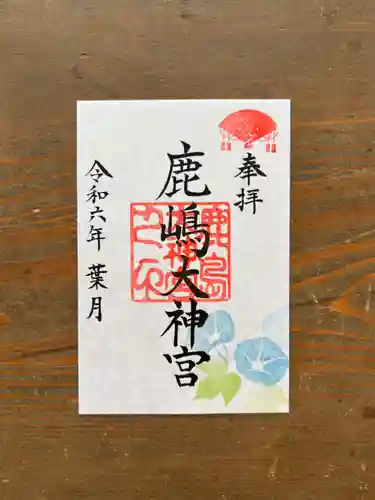 奉拝
鹿嶋大神宮
令和六年 葉月